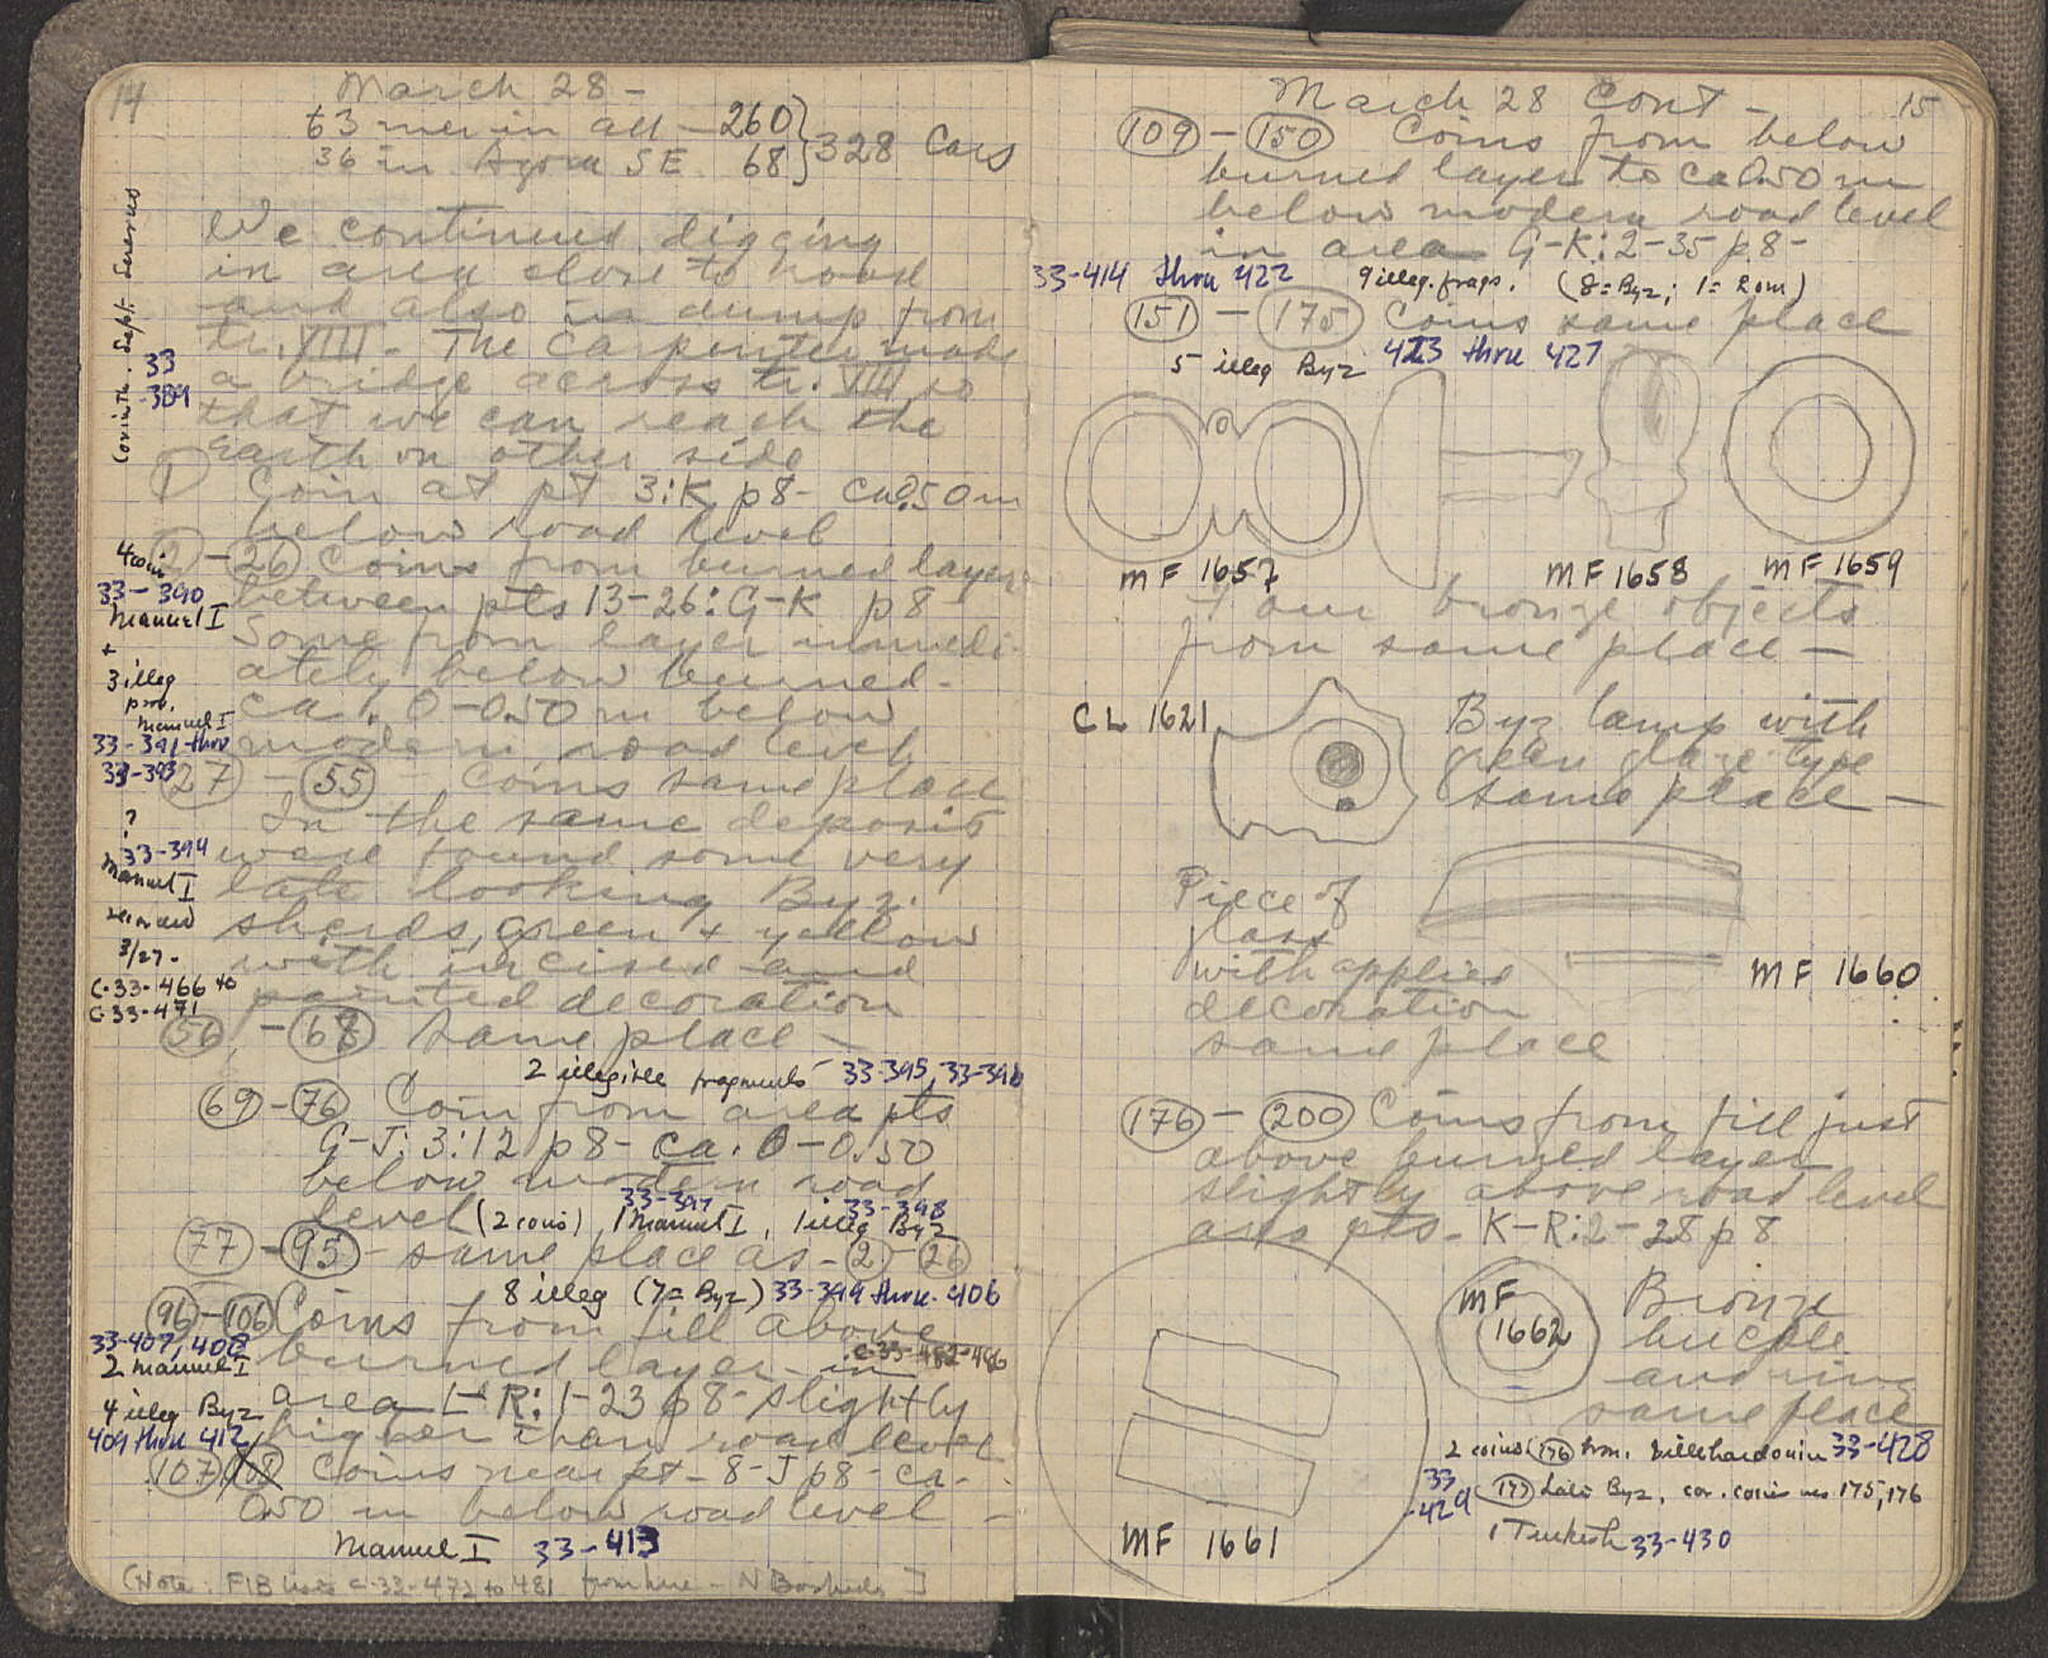 14
March 28 -
63 men in all - 260 } 328 Cars
36 in Agora SE 68
Corinth. Sept. Severus
33
-389
We continued digging
in area close to road
and also in dump from
tr. XIII - The Carpenter made
a bridge across tr. XIII so
that we can reach the
earth on other side
1 Coin at pt 3:K p8 - ca 0.50 m
below road level
2 - 26 Coins from burned layer
between pts 13-26: G-K p8
Some from layer immedi-
ately below burned -
ca 1.0-0.50 m below
modern road level
4 coin
33-390
Manuel I
+
3 illeg
prob.
Manuel I
33-391 thru
33-393
27 - 55 Coins same place
In the same deposit
were found some very
late looking Byz.
sherds, green + yellow
with incised and
painted decoration
?
33-394
Manuel I
3/27-
C-33-466 to
C-33-471
56 - 68 same place -
2 illegible fragments 33-395, 33-396
69 - 76 Coin from area pts
G-J: 3:12 p8 - ca. 0-0.50
below modern road
33-397 33-398
level (2 coins) 1 Manuel I, 1 illeg Byz
77 - 95 - same place as - 2 - 26
8 illeg (7 = Byz) 33-399 thru 406
96 - 106 Coins from fill above
burned layer in C-33-482-486
area L-R: 1-23 p8 - slightly
higher than road level
33-407, 408
2 Manuel I
4 illeg Byz
409 thru 412
107 108 Coins near pt - 8-J p8 - ca -
0.50 m below road level -
Manuel I 33-413
(Note: C-33-472 to 481 from here -
March 28 Cont - 15
109 - 150 Coins from below
burned layer to ca 0.50 m
below modern road level
in area G-K: 2-35 p8 -
33-414 thru 422 9 illeg. frags. (8 = Byz; 1 = Rom)
151 - 175 Coins same place
5 illeg Byz 423 thru 427
MF 1657 MF 1658 MF 1659
Four bronze objects
from same place -
CL 1621
Byz lamp with
green glaze type
same place -
Piece of
glass
with applied
decoration
same place
MF 1660
176 - 200 Coins from fill just
above burned layer
slightly above road level
area pts - K-R: 2-28 p8
MF
1662
Bronze
buckle
and ring
same place
2 coins (176) Villehardouin 33-428
33
-429 (177) Late Byz, cor. coins nos 175, 176
1 Turkish 33-430
MF 1661